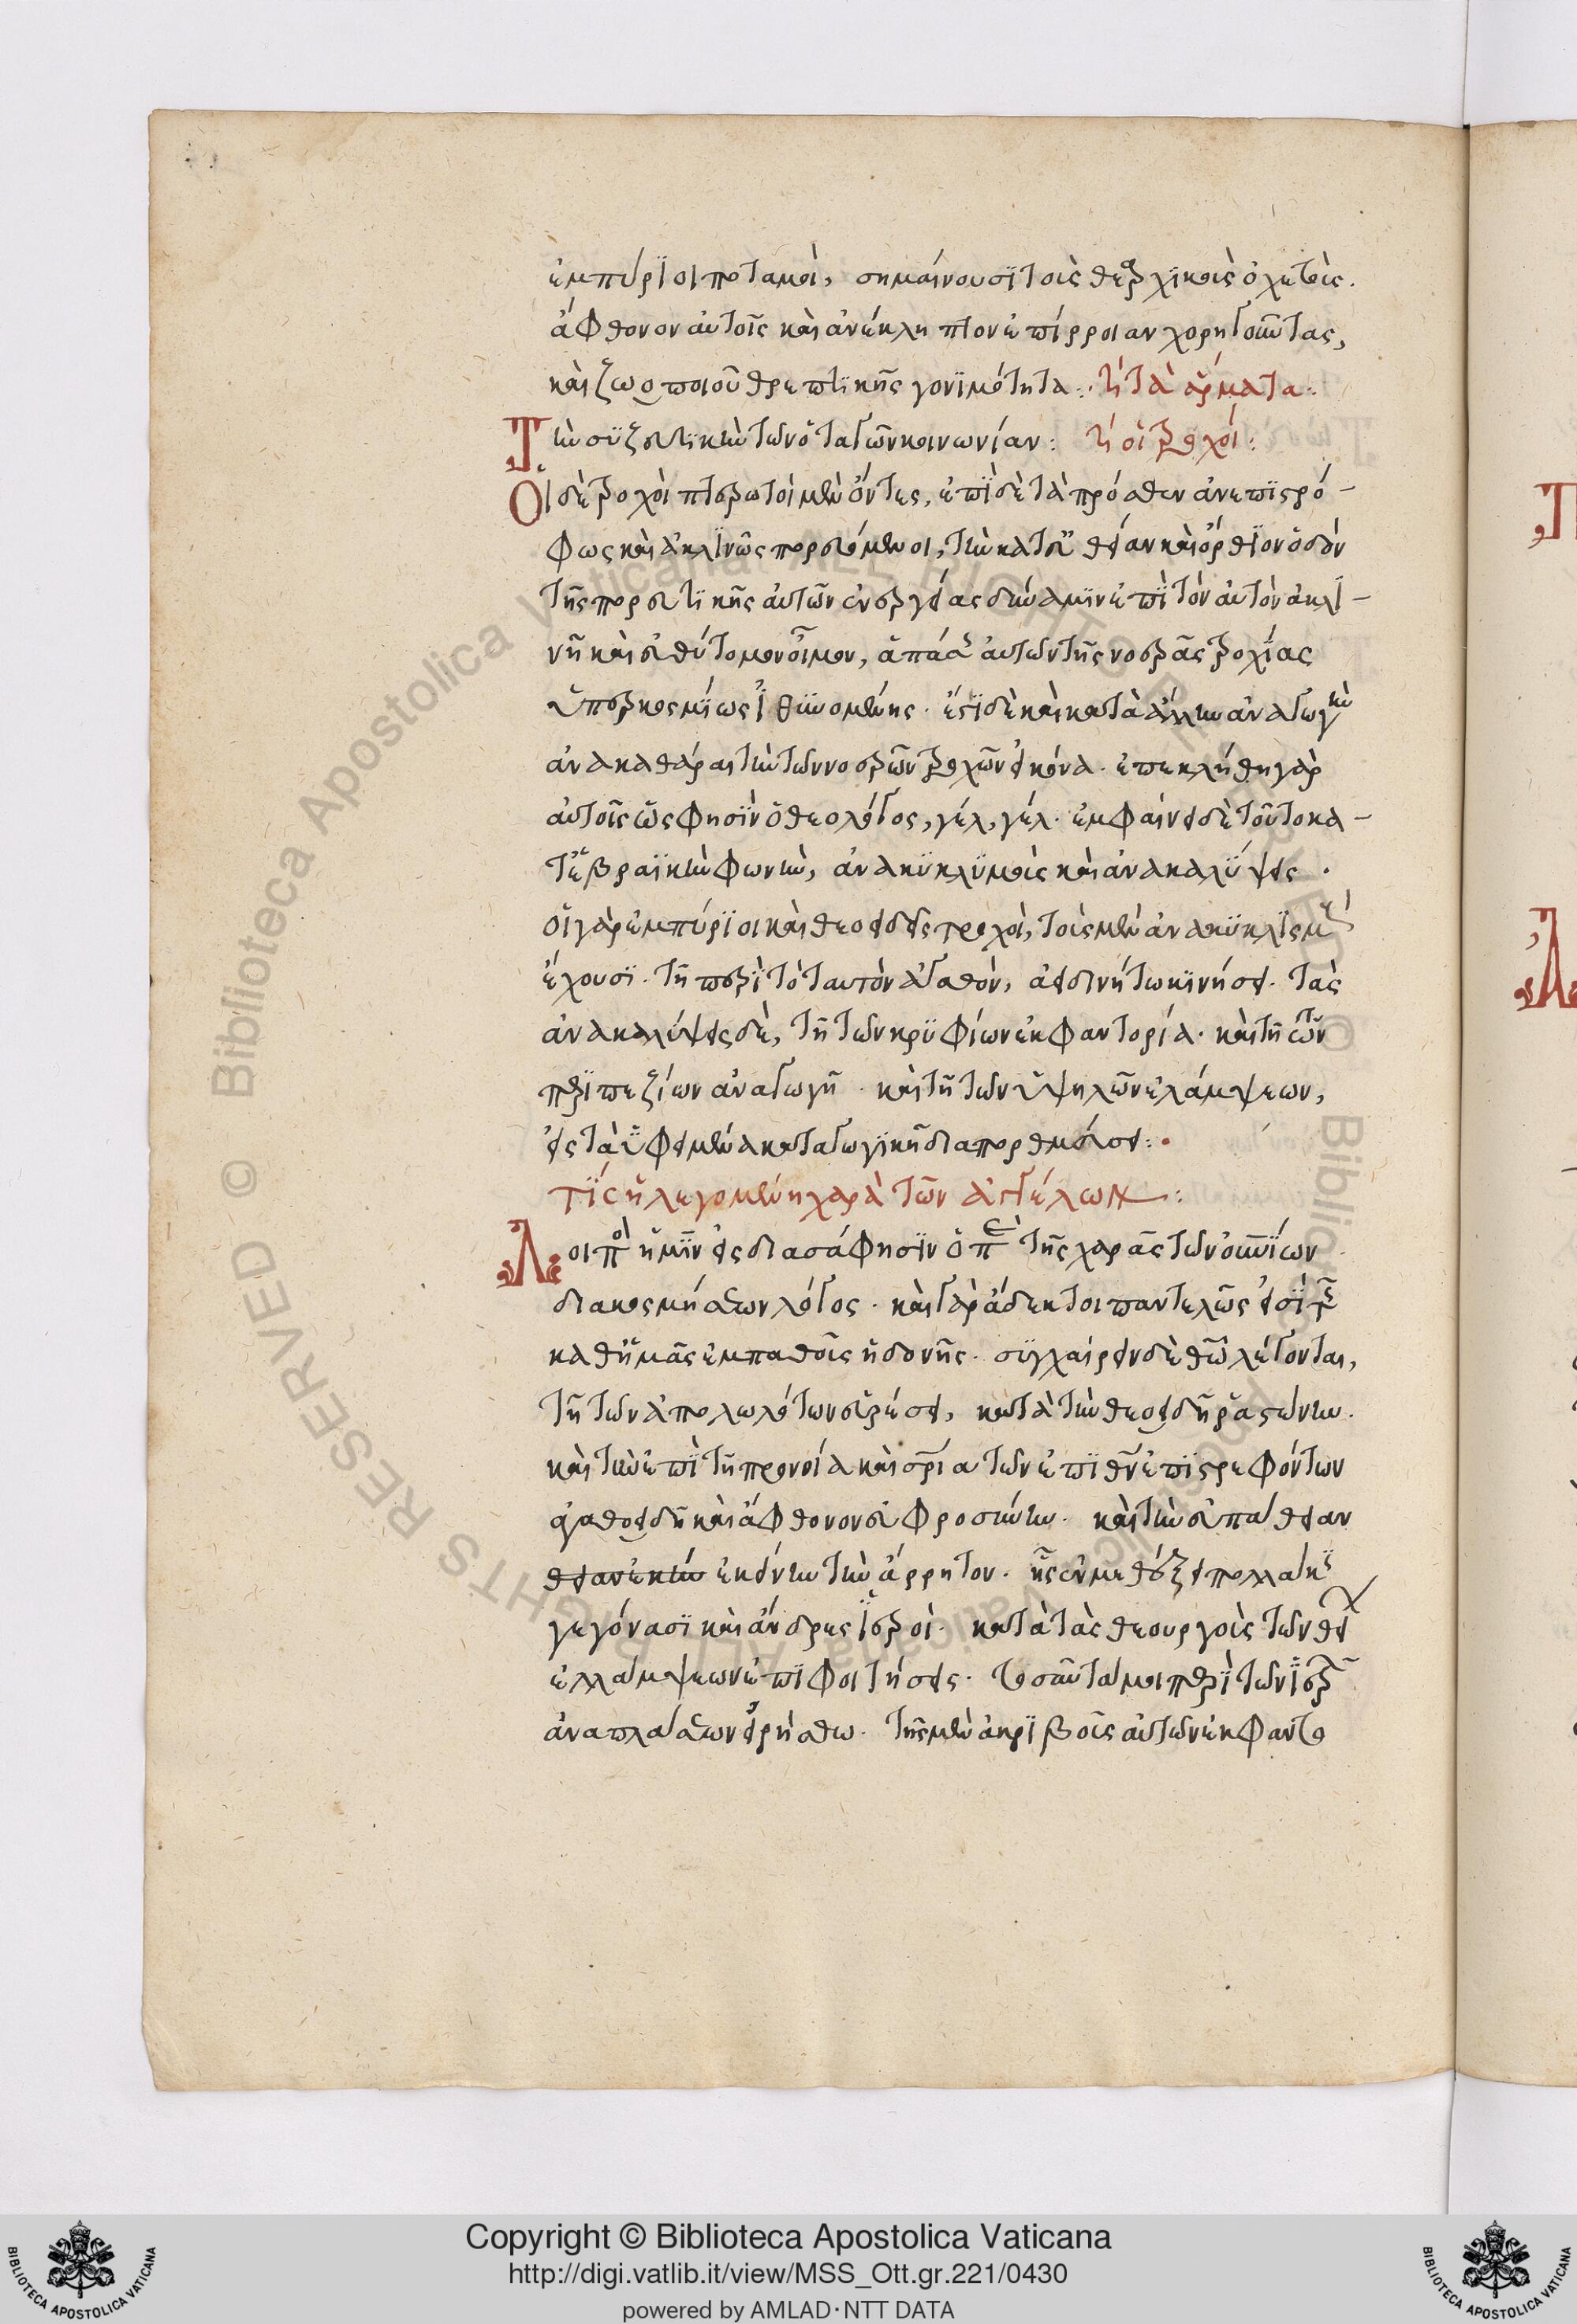 ἐμπύριοι ποταμοὶ, σημαίνουσι τοὺς θεαρχικοὺς ὀχετοὺς.
ἄφθονον αὐτοῖς καὶ ἀνέκλειπτον ἐπίρροιαν χορηγοῦντας,
καὶ ζωοποιοῦ θρεπτικῆς γονιμότητα: τί τὰ ἅρματα:
Τὴν συζευκτικὴν τῶν ὁταγῶν κοινωνίαν: τί οἱ τροχοί:
Οἱ δὲ τροχοὶ πτερωτοὶ μὲν ὄντες, ἐπὶ δὲ τὰ πρόσθεν ἀνεπιστρό-
φως καὶ ἀκλινῶς πορευόμενοι, τὴν κατ' εὐθεῖαν καὶ ὄρθιον ὁδὸν
τῆς πορευτικῆς αὐτῶν ἐνεργείας δύναμιν ἐπὶ τὸν αὐτὸν ἀκλι-
νῆ καὶ εὐθύτομον οἶμον, ἁπάσης αὐτῶν τῆς νοερᾶς τροχίας
ὑπερκοσμίως ἰθυνομένης. ἔστι δὲ καὶ κατὰ ἄλλην ἀναγωγὴν
ἀνακαθάραι τὴν τῶν νοερῶν τροχῶν εἰκόνα. ἐπεκλήθη γὰρ
αὐτοῖς ὥς φησὶν ὁ θεολόγος, γέλ, γέλ. ἐμφαίνει δὲ τοῦτο κα-
τ' ἑβραϊκὴν φωνὴν, ἀνακυκλισμοὺς καὶ ἀνακαλύψεις.
οἱ γὰρ ἐμπύριοι καὶ θεοειδεῖς τροχοὶ, τοὺς μὲν ἀνακυκλισμοὺς
ἔχουσι. τῇ περὶ τὸ ταυτὸν ἀγαθὸν, ἀεικινήτω κινήσει. τὰς
ἀνακαλύψεις δὲ, τῇ τῶν κρυφίων ἐκφαντορία. καὶ τῇ τῶν
περιπεζίων ἀναγωγῇ. καὶ τῇ τῶν ὑψηλῶν ἐλάμψεων,
εἰς τὰ ὑφειμένα καταγωγικῆ διαπορθμεύσει:
τίς ἡ λεγομένη χαρὰ τῶν ἀγγέλων:
Λοιπὸς ἡμῖν εἰς διασάφησιν ὁ περὶ τῆς χαρᾶς τῶν οὐρανίων
διακοσμήσεων λόγος. καὶ γὰρ ἄδεκτοι παντελῶς εἰσὶ τῆς
καθ' ἡμᾶς ἐμπαθοῦς ἡδονῆς. συγχαίρειν δὲ θεῶ λέγονται,
τῇ τῶν ἀπολωλότων εὑρέσει, κατὰ τὴν θεοειδῆ ῥαστώνην.
καὶ τὴν ἐπὶ τῇ προνοία καὶ σωτηρία τῶν ἐπὶ θεὸν ἐπιστρεφόντων
ἀγαθοειδῆ καὶ ἄφθονον εὐφροσύνην. καὶ τὴν εὐπάθειαν
θειανεκιν ἐκείνην τὴν ἄρρητον. ἧς ἐν μεθέξει πολλάκις
γεγόνασι καὶ ἄνδρες ἱεροὶ. κατὰ τὰς θεουργοὺς τῶν θείων
ἐλλάμψεων ἐπιφοιτήσεις. τοσαῦτά μοι περὶ τῶν ἱερῶν
ἀναπλάσεων εἰρήσθω. τῆς μὲν ἀκριβοῦς αὐτῶν ἐκφαντο
Copyright © Biblioteca Apostolica Vaticana
http://digi.vatlib.it/view/MSS_Ott.gr.221/0430
powered by AMLAD·NTT DATA